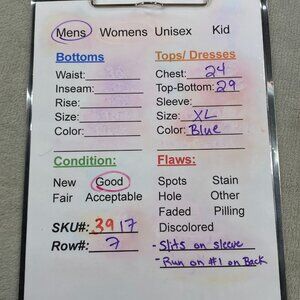 Mens Womens Unisex Kid
Bottoms
Waist:
Inseam:
Rise:
Size:
Color:
Tops/ Dresses
Chest: 24
Top-Bottom: 29
Sleeve:
Size: XL
Color: Blue
Condition:
New Good
Fair Acceptable
SKU#: 3917
Row#: 7
Flaws:
Spots Stain
Hole Other
Faded Pilling
Discolored
- Slits on sleeve
- Run on #1 on Back